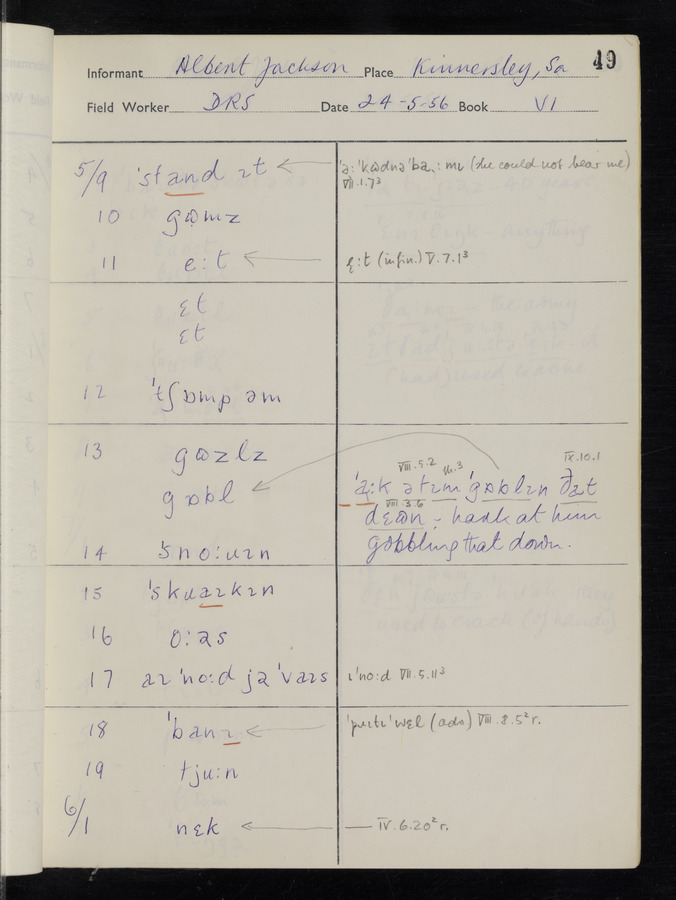 49
Informant Albert Jackson Place Kinnersley, Sa
Field Worker DRS Date 24-5-56 Book VI
5/9 ˈstand ɪt
ˈə: ˈkɷdnə ˈba: mɪ (she could not hear me)
VII.1.7³
10 gɷmz
11 e:t
ę:t (infin.) V.7.1³
ɛt
ɛt
12 ˈtʃɒmp əm
13 gɷzlz
gɒbl
VIII.5.2 IX.10.1
ˈa:k ətɪm ˈgɒblɪn ðat
VIII.3.6
dɛɷn - hark at him
gobbling that down.
14 ˈsno:uɪn
15 ˈskuaɪkɪn
16 o:əs
17 aɪ ˈno:d jə ˈvaɪs
ɪ ˈno:d VII.5.11³
18 ˈbanɪ
ˈpɹɪtɪ ˈwɛl (adv) VIII.8.5² r.
19 tju:n
6/1 nɛk
IV.6.20² r.